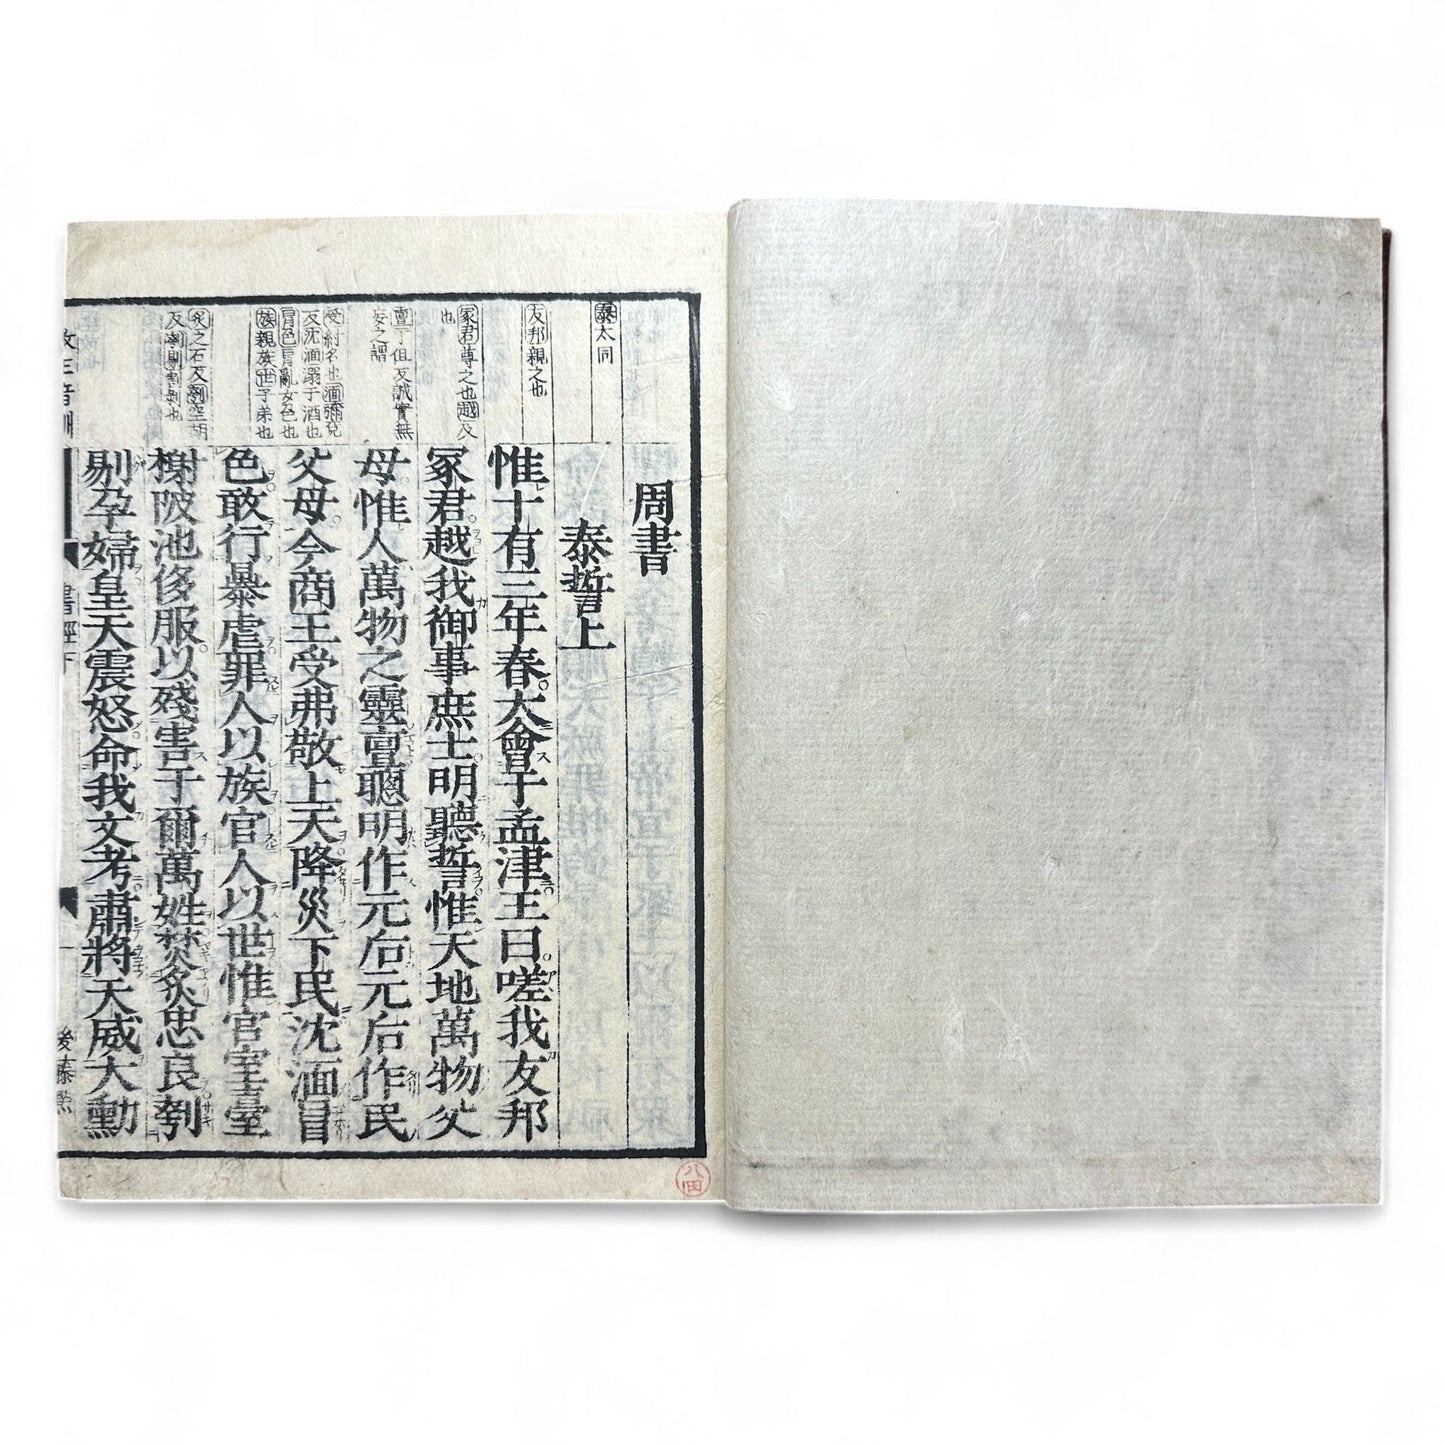 周書
泰誓上
惟十有三年春大會于孟津王曰嗟我友邦
冢君越我御事庶士明聽誓惟天地萬物父
母惟人萬物之靈亶聰明作元后元后作民
父母今商王受弗敬上天降災下民沈湎冒
色敢行暴虐罪人以族官人以世惟宮室臺
榭陂池侈服以殘害于爾萬姓焚炙忠良刳
剔孕婦皇天震怒命我文考肅將天威大勳
泰太同
友邦親之也
冢君尊之也越及
也
亶丁但反誠實無
妄之謂
受紂名也湎彌兗
反沈湎溺于酒也
冒色冒亂女色也
族親族世子弟也
炙之石反刳空胡
反刳剔割剝也
改正音訓
書經下
一
後藤點
八田